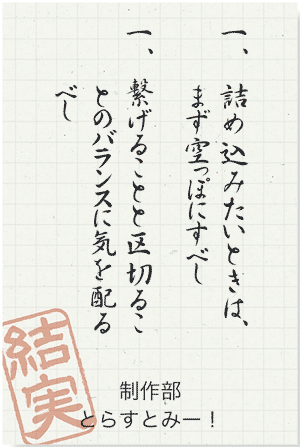 一、詰め込みたいときは、
まず空っぽにすべし
一、繋げることと区切るこ
とのバランスに気を配る
べし
制作部
とらすとみー！
結実